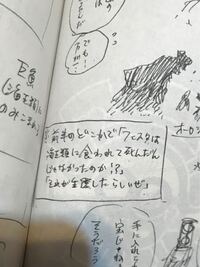 でも!
巨魚
(海王類に
のみこまれ
前半のどこかで「フェスタは
海王類に食われて死んだん
じゃなかったのか!?」
「それが生還したらしいぜ」
オーロ
手に入れら
宝じゃね
そうだろう